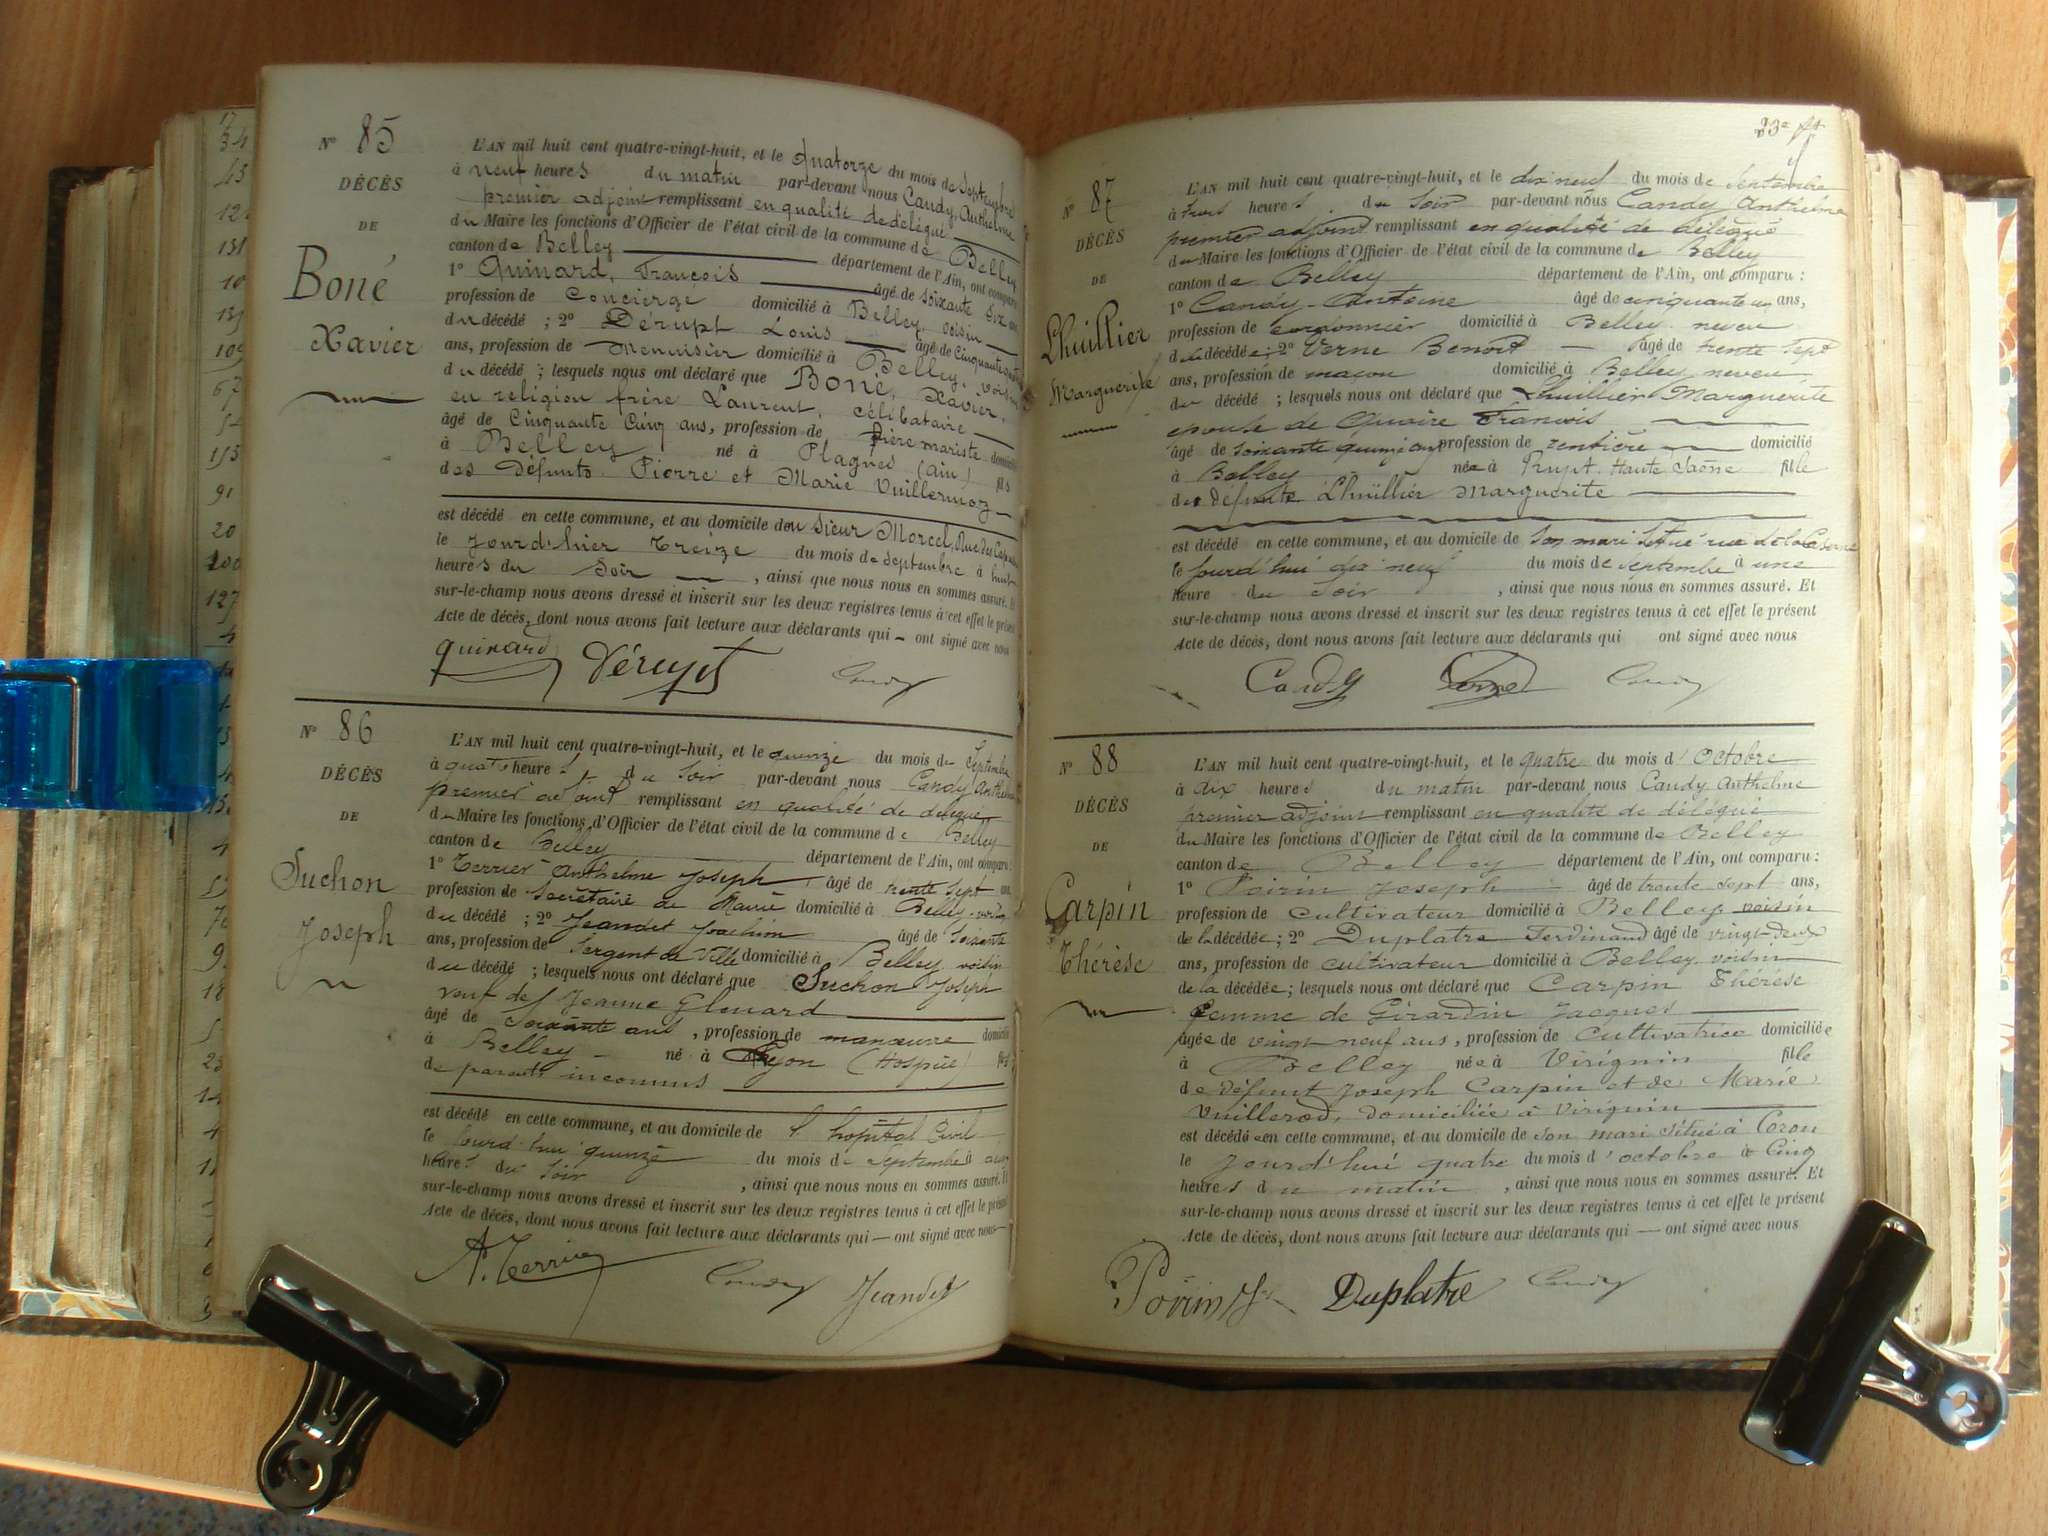 Nº 85
DÉCÈS
DE
Boné
Xavier
L'AN mil huit cent quatre-vingt-huit, et le quatorze du mois de Septembre
à neuf heures du matin par-devant nous Candy, Anthelme
premier adjoint remplissant en qualité de délégué
du Maire les fonctions d'Officier de l'état civil de la commune de Belley
canton de Belley département de l'Ain, ont comparu
1º Quinard, François âgé de soixante six ans
profession de Concierge domicilié à Belley, voisin
du décédé ; 2º Dérupt Louis âgé de cinquante
ans, profession de Menuisier domicilié à Belley, voisin
du décédé ; lesquels nous ont déclaré que Boné, Xavier,
en religion frère Laurent, célibataire
âgé de Cinquante Cinq ans, profession de frère mariste domicilié
à Belley né à Plagnes (Ain) fils
des défunts Pierre et Marie Vuillermoz
est décédé en cette commune, et au domicile du Sieur Morcel, Rue des
le jourd'hier treize du mois de septembre à huit
heures du soir , ainsi que nous nous en sommes assuré. Et
sur-le-champ nous avons dressé et inscrit sur les deux registres tenus à cet effet le présent
Acte de décès, dont nous avons fait lecture aux déclarants qui ont signé avec nous
quinard Dérupt Candy
Nº 86
DÉCÈS
DE
Suchon
Joseph
L'AN mil huit cent quatre-vingt-huit, et le quinze du mois de Septembre
à quatre heures du soir par-devant nous Candy Anthelme
premier adjoint remplissant en qualité de délégué
du Maire les fonctions d'Officier de l'état civil de la commune de Belley
canton de Belley département de l'Ain, ont comparu :
1º Terrier Anthelme Joseph âgé de trente sept ans
profession de Secrétaire de Mairie domicilié à Belley, voisin
du décédé ; 2º Jeandet Joachim âgé de soixante
ans, profession de Sergent de Ville domicilié à Belley voisin
du décédé ; lesquels nous ont déclaré que Suchon Joseph
veuf de Jeanne
âgé de soixante ans , profession de manœuvre domicilié
à Belley né à Lyon (Hospice) fils
de parents inconnus
est décédé en cette commune, et au domicile de l'hopital Civil
le jourd'hui quinze du mois de Septembre à
heures du soir , ainsi que nous nous en sommes assuré. Et
sur-le-champ nous avons dressé et inscrit sur les deux registres tenus à cet effet le présent
Acte de décès, dont nous avons fait lecture aux déclarants qui — ont signé avec nous
A. Terrier Candy Jeandet
Nº 87
DÉCÈS
DE
Lhuillier
Marguerite
L'AN mil huit cent quatre-vingt-huit, et le dix neuf du mois de Septembre
à trois heures du soir par-devant nous Candy Anthelme
premier adjoint remplissant en qualité de délégué
du Maire les fonctions d'Officier de l'état civil de la commune de Belley
canton de Belley département de l'Ain, ont comparu :
1º Candy Antoine âgé de cinquante un ans,
profession de cordonnier domicilié à Belley neveu
de la décédée ; 2º Verne Benoit âgé de trente sept
ans, profession de maçon domicilié à Belley neveu
du décédé ; lesquels nous ont déclaré que Lhuillier Marguerite
épouse de François
âgé de soixante quinze ans profession de rentière domicilié
à Belley née à Rupt. Haute Saône fille
des défunts Lhuillier Marguerite
est décédé en cette commune, et au domicile de son mari situé rue de la Caserne
le jourd'hui dix neuf du mois de septembre à une
heure du soir , ainsi que nous nous en sommes assuré. Et
sur-le-champ nous avons dressé et inscrit sur les deux registres tenus à cet effet le présent
Acte de décès, dont nous avons fait lecture aux déclarants qui ont signé avec nous
Candy Verne Candy
Nº 88
DÉCÈS
DE
Carpin
Thérèse
L'AN mil huit cent quatre-vingt-huit, et le quatre du mois d'Octobre
à dix heures du matin par-devant nous Candy Anthelme
premier adjoint remplissant en qualité de délégué
du Maire les fonctions d'Officier de l'état civil de la commune de Belley
canton de Belley département de l'Ain, ont comparu :
1º Poirin Joseph âgé de trente sept ans,
profession de cultivateur domicilié à Belley voisin
de la décédée ; 2º Duplatre Ferdinand âgé de vingt-deux
ans, profession de cultivateur domicilié à Belley voisin
de la décédée ; lesquels nous ont déclaré que Carpin Thérèse
femme de Girardin Jacques
âgée de vingt neuf ans , profession de cultivatrice domiciliée
à Belley née à Virignin fille
de défunt Joseph Carpin et de Marie
Vuillerod, domiciliée à Virignin
est décédée en cette commune, et au domicile de son mari situé à Coron
le jourd'hui quatre du mois d'octobre à Cinq
heures du matin , ainsi que nous nous en sommes assuré. Et
sur-le-champ nous avons dressé et inscrit sur les deux registres tenus à cet effet le présent
Acte de décès, dont nous avons fait lecture aux déclarants qui — ont signé avec nous
Poirin Duplatre Candy